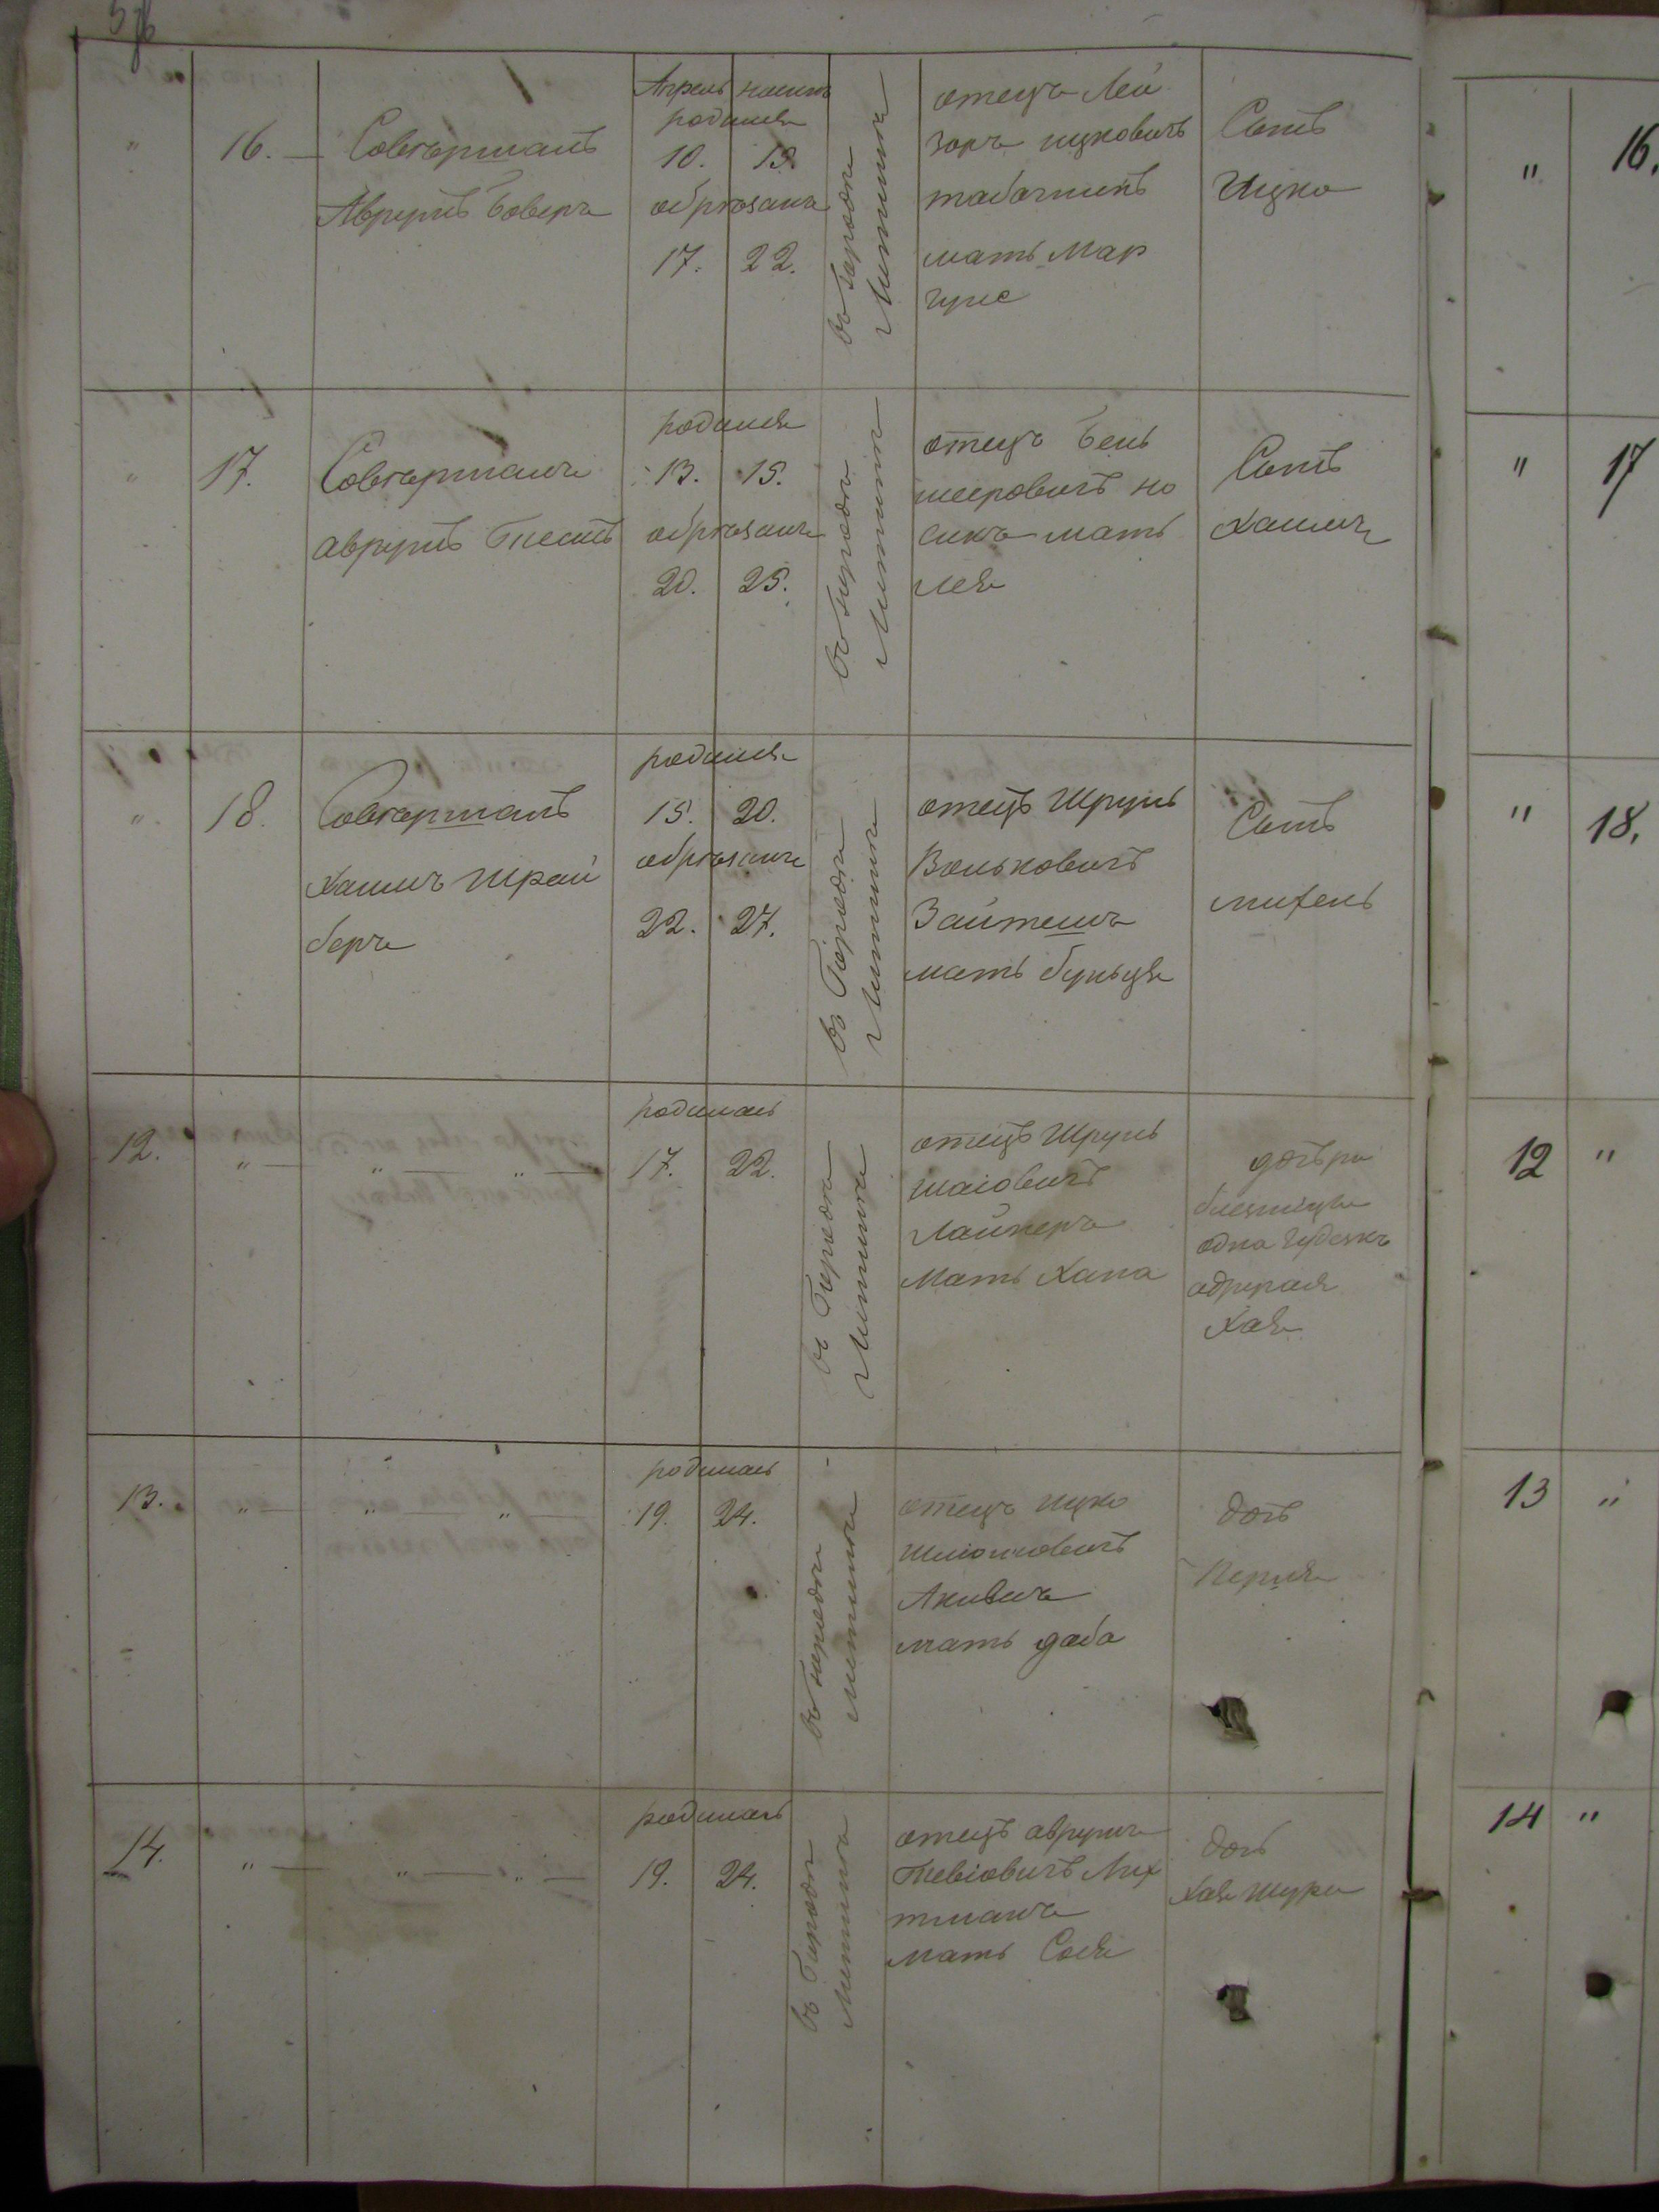 "
16.
Совершалъ
Аврумъ Боверъ
Апрель
родился
10.
15.
обрѣзанъ
17. 22.
въ городѣ
Литинѣ
отецъ Лей
зоръ ицковичъ
табачникъ
мать Мар
гуле
Сынъ
Ицко
"
17.
Совершалъ
аврумъ
родился
13. 15.
обрѣзанъ
20. 25.
въ городѣ
Литинѣ
отецъ Бень
мееровичъ но
сикъ мать
лея
Сынъ
Хаимъ
"
18.
Совершалъ
Хаимъ Шрай
беръ
родился
15. 20.
обрѣзанъ
22. 27.
въ Городѣ
Литинѣ
отецъ Шруль
Вольковичъ
мать бульця
Сынъ
михель
12.
" " "
родилась
17. 22.
въ Городѣ
Литинѣ
отецъ Шруль
шаіовичъ
Лайнеръ
Мать Хана
одна
Хая
13.
" " "
родилась
19. 24.
въ городѣ
Литинѣ
отецъ ицко
Шліомовичъ
мать доба
дочь
Перля
14.
" " "
родилась
19. 24.
въ Городѣ
Литинѣ
отецъ аврумъ
Тевіовичъ Лих
тманъ
мать Сося
дочь
Хая Шура
"
16.
"
17
"
18.
12
"
13
"
14
"